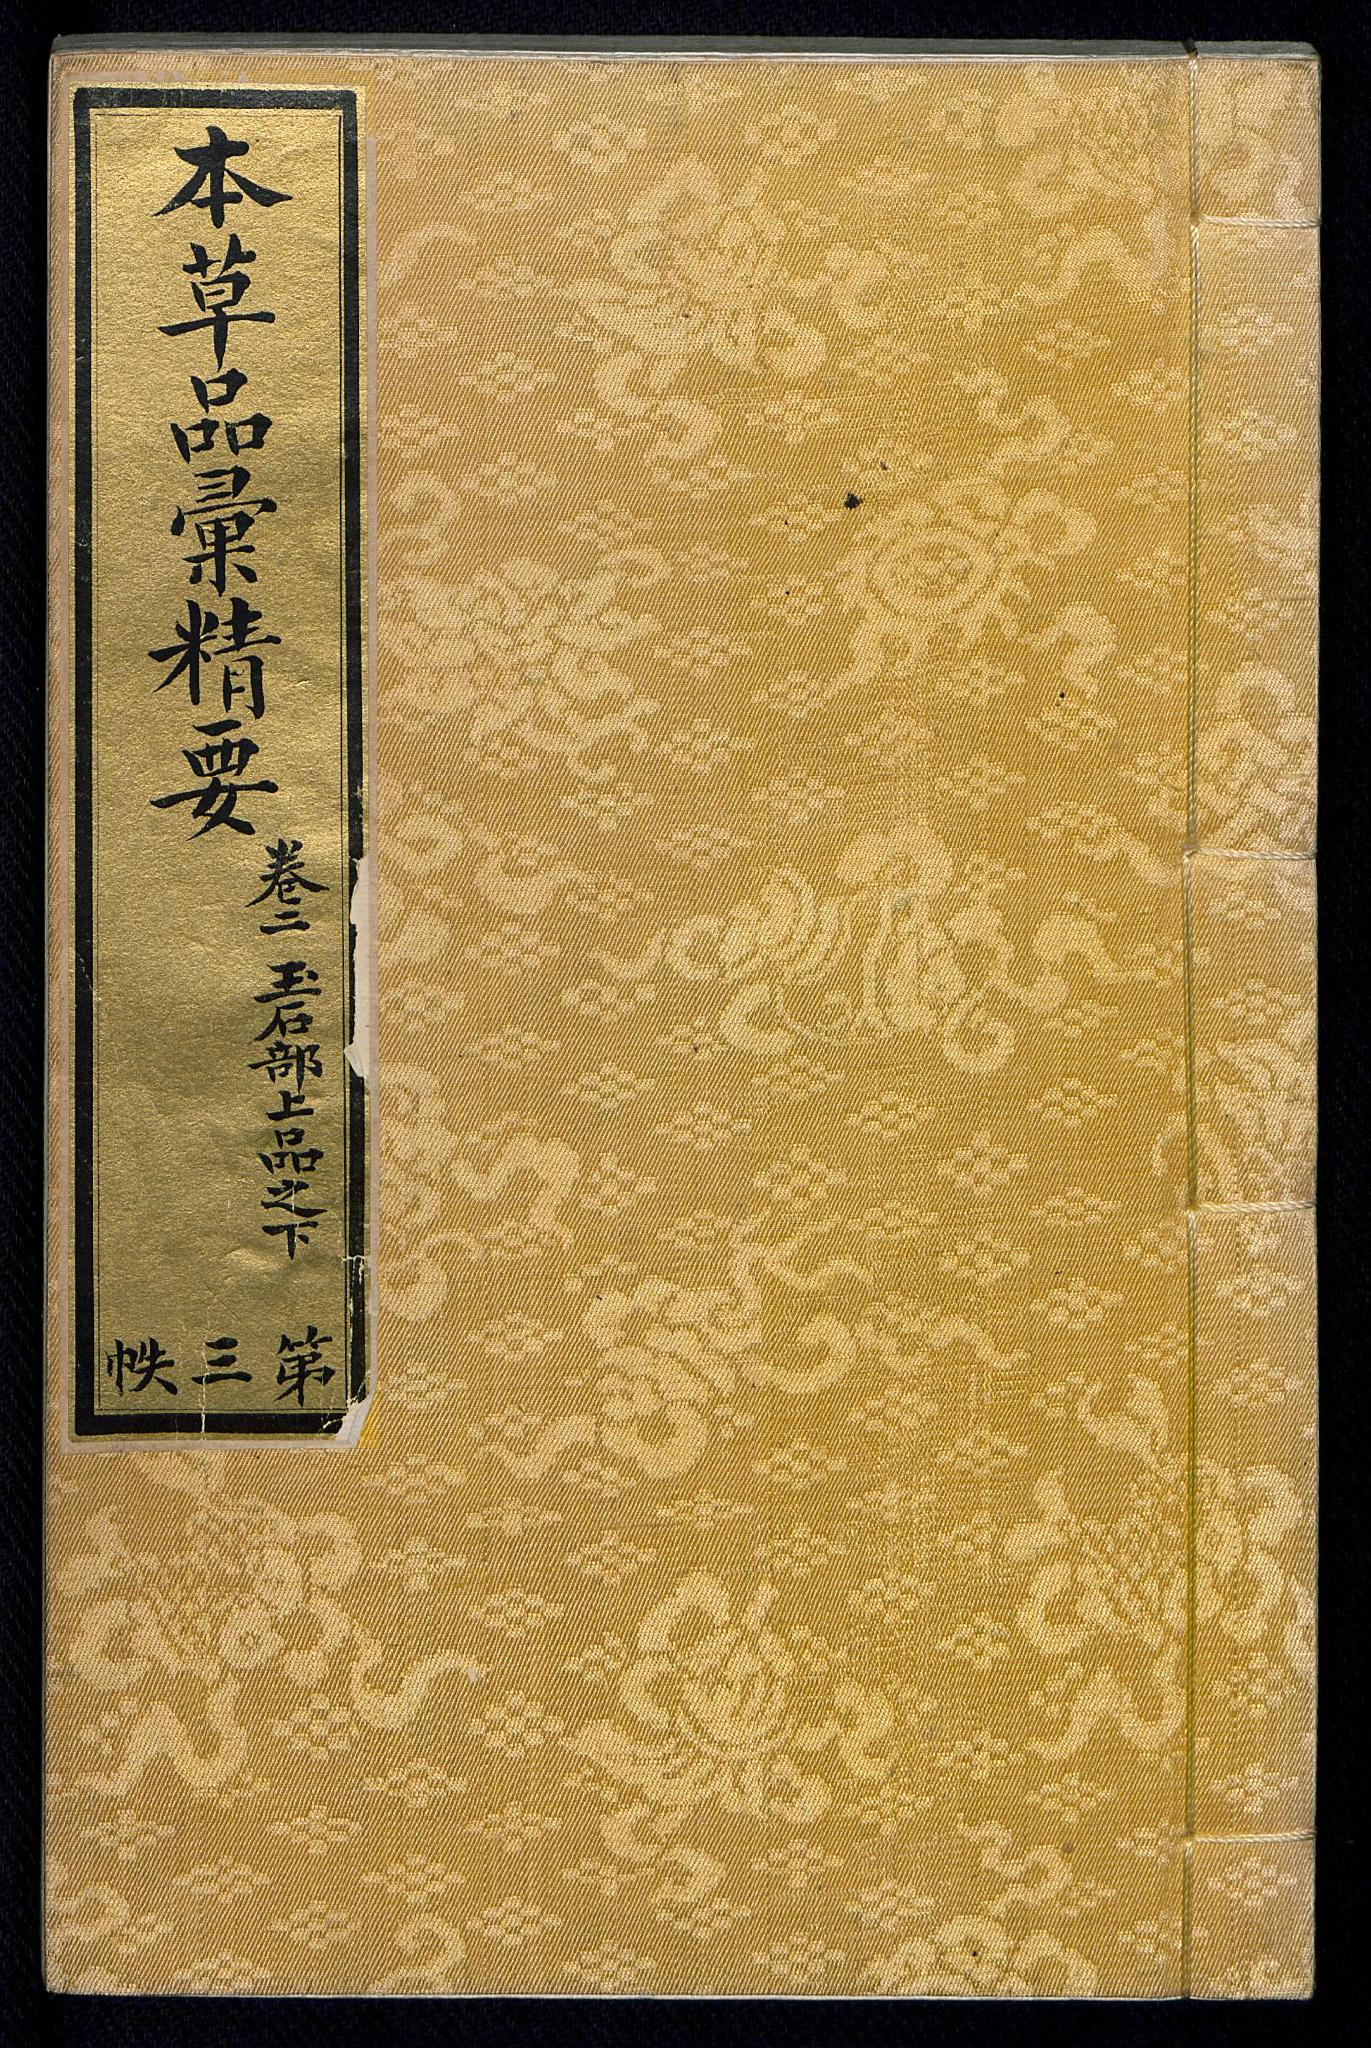 本草品彙精要
卷二 玉石部上品之下
第三帙